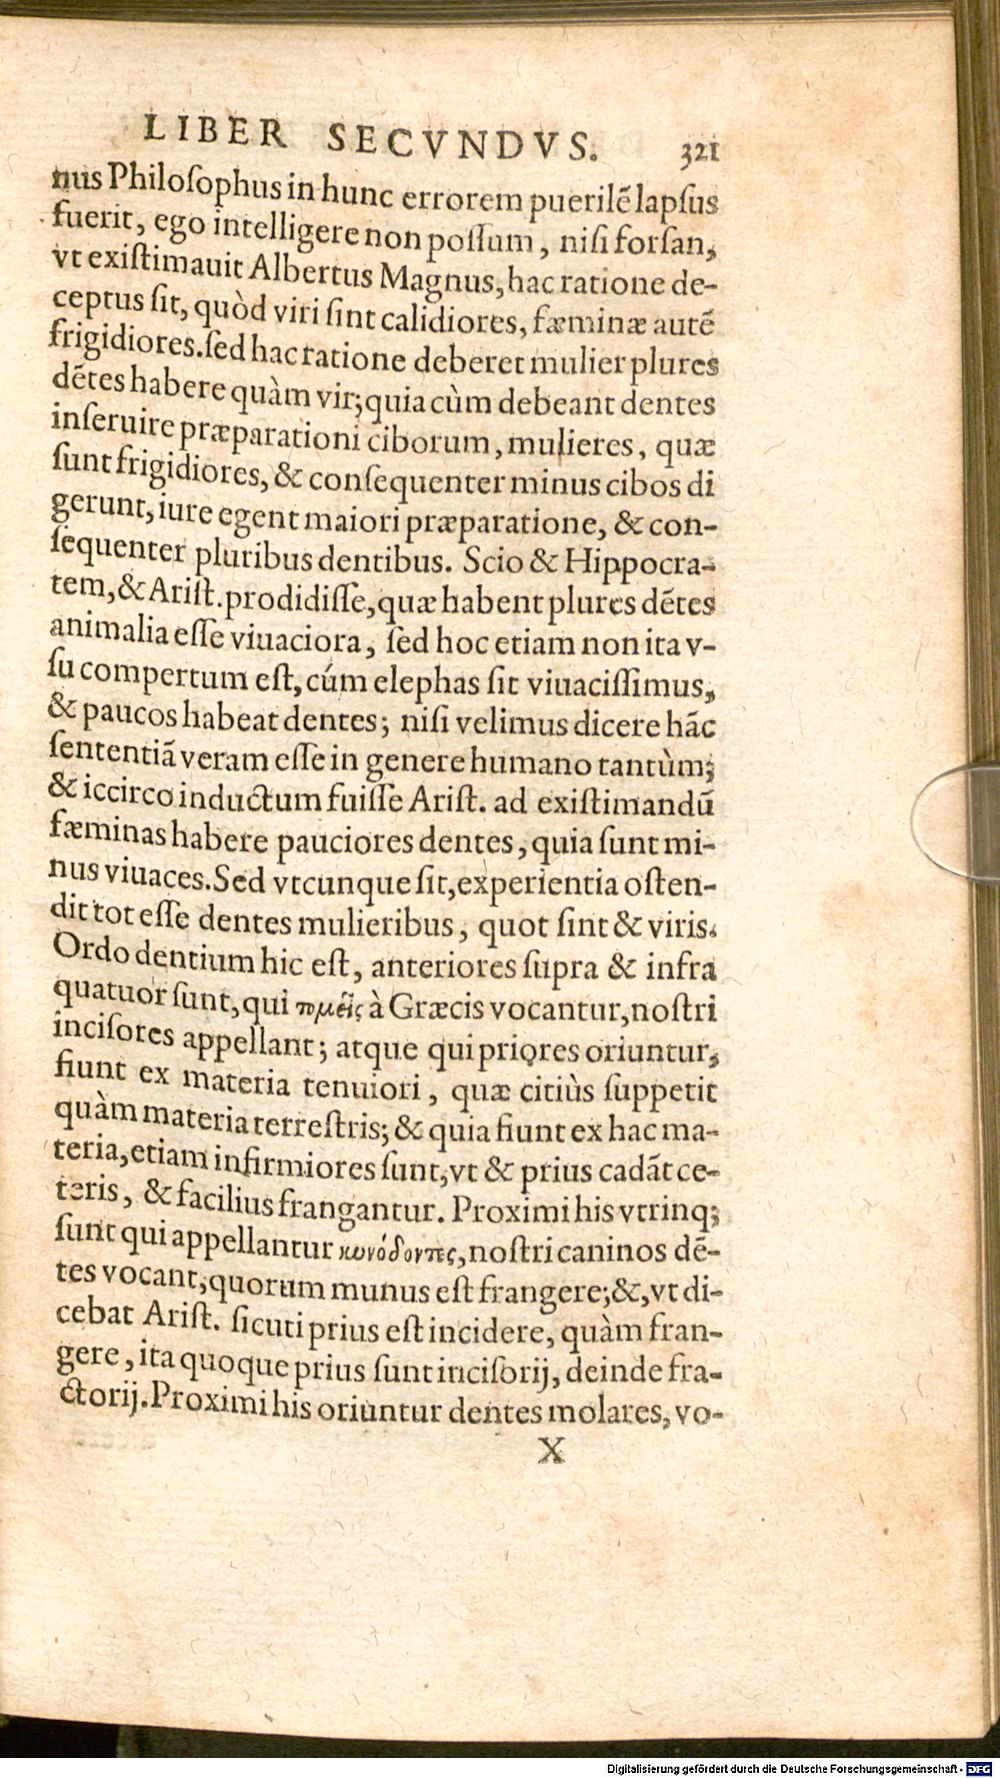 LIBER SECVNDVS. 321
nus Philoſophus in hunc errorem puerilē lapſus
fuerit, ego intelligere non poſſum, niſi forſan,
vt exiſtimauit Albertus Magnus, hac ratione de-
ceptus ſit, quòd viri ſint calidiores, fæminæ autē
frigidiores. ſed hac ratione deberet mulier plures
dētes habere quàm vir; quia cùm debeant dentes
inſeruire præparationi ciborum, mulieres, quæ
ſunt frigidiores, & conſequenter minus cibos di
gerunt, iure egent maiori præparatione, & con-
ſequenter pluribus dentibus. Scio & Hippocra-
tem, & Ariſt. prodidiſſe, quæ habent plures dētes
animalia eſſe viuaciora, ſed hoc etiam non ita v-
ſu compertum eſt, cúm elephas ſit viuaciſſimus,
& paucos habeat dentes; niſi velimus dicere hāc
ſententiā veram eſſe in genere humano tantùm;
& iccirco inductum fuiſſe Ariſt. ad exiſtimandū
fæminas habere pauciores dentes, quia ſunt mi-
nus viuaces. Sed vtcunque ſit, experientia oſten-
dit tot eſſe dentes mulieribus, quot ſint & viris.
Ordo dentium hic eſt, anteriores ſupra & infra
quatuor ſunt, qui τομεῖς à Græcis vocantur, noſtri
inciſores appellant; atque qui priores oriuntur,
fiunt ex materia tenuiori, quæ citiùs ſuppetit
quàm materia terreſtris; & quia fiunt ex hac ma-
teria, etiam infirmiores ſunt, vt & prius cadāt ce-
teris, & facilius frangantur. Proximi his vtrinq;
ſunt qui appellantur κυνόδοντες, noſtri caninos dē-
tes vocant, quorum munus eſt frangere; &, vt di-
cebat Ariſt. ſicuti prius eſt incidere, quàm fran-
gere, ita quoque prius ſunt inciſorij, deinde fra-
ctorij. Proximi his oriuntur dentes molares, vo-
X
Digitalisierung gefördert durch die Deutsche Forschungsgemeinschaft - DFG